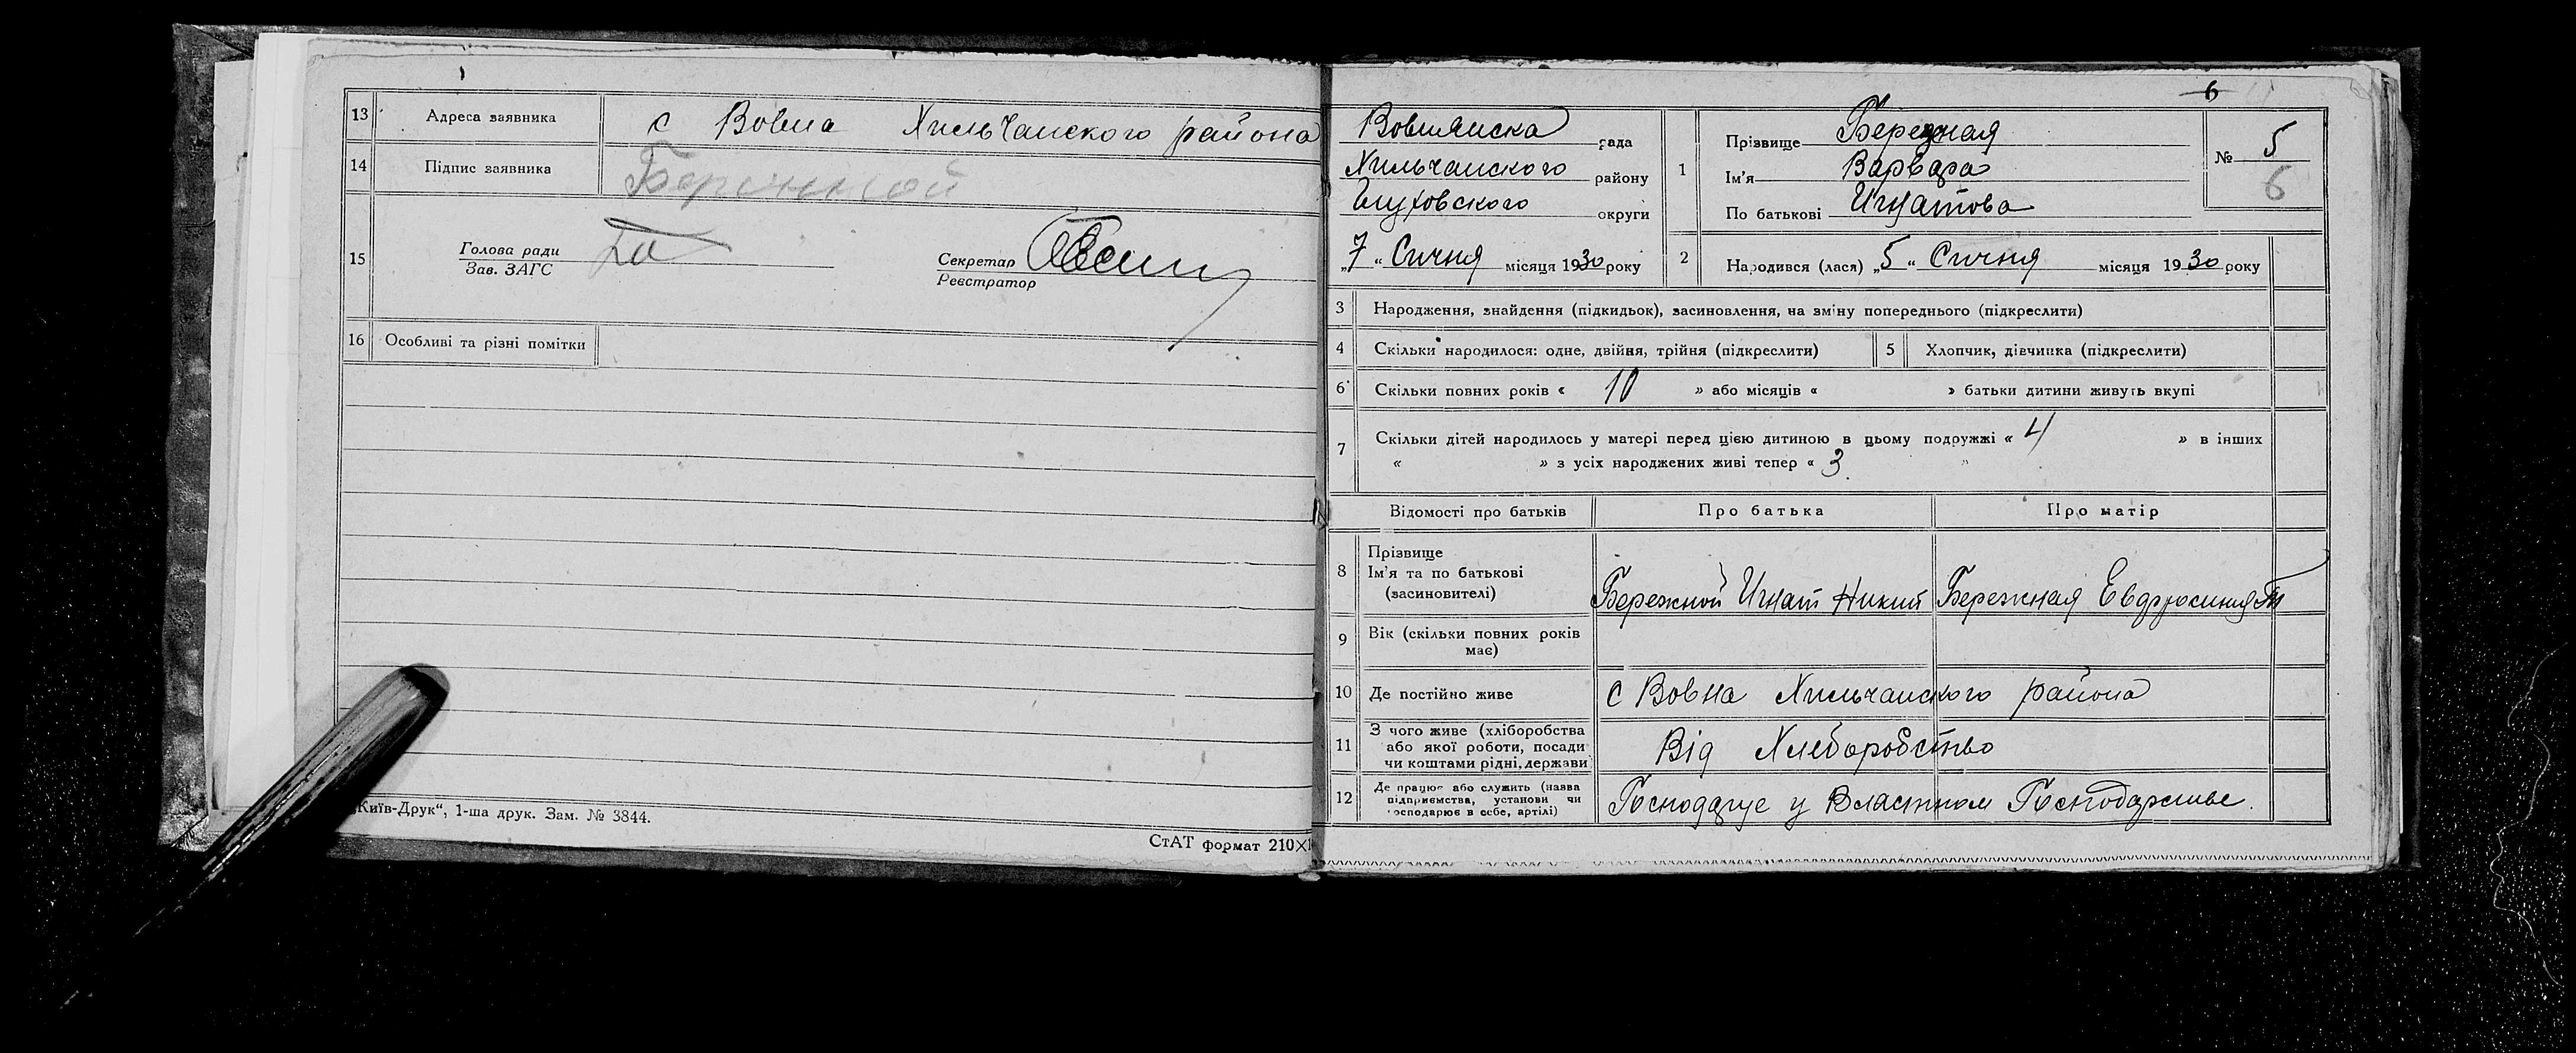 13 Адреса заявника с Вовна Хильчанского района
14 Підпис заявника Бережной
15 Голова ради
Зав. ЗАГС
Секретар
Реєстратор
16 Особливі та різні помітки
„Київ-Друк“, 1-ша друк. Зам. № 3844.
СтАТ формат 210×1
6
Вовнянска рада
Хильчанского району
Глуховского округи
„7“ Сичня місяця 1930 року
1 Прізвище Бережная
Ім'я Варвара
По батькові Игнатова
№ 5
6
2 Народився (лася) „5“ Сичня місяця 1930 року
3 Народження, знайдення (підкидьок), засиновлення, на зміну попереднього (підкреслити)
4 Скільки народилося: одне, двійня, трійня (підкреслити) 5 Хлопчик, дівчинка (підкреслити)
6 Скільки повних років « 10 » або місяців « » батьки дитини живуть вкупі
7 Скільки дітей народилось у матері перед цією дитиною в цьому подружжі « 4 » в інших
« » з усіх народжених живі тепер « 3 »
Відомості про батьків Про батька Про матір
8 Прізвище
Ім'я та по батькові
(засиновителі)
Бережной Игнат Никит Бережная Евдросиния
9 Вік (скільки повних років
має)
10 Де постійно живе с Вовна Хильчанского района
11 З чого живе (хліборобства
або якої роботи, посади
чи коштами рідні, держави
Від Хлеборобство
12 Де працює або служить (назва
підприємства, установи чи
господарює в себе, артілі)
Госнодарує у Властном Госнодарстве.